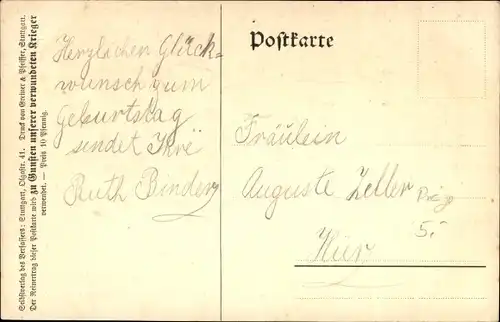 Selbstverlag des Verfassers: Stuttgart, Olgastr. 41. Druck von Greiner & Pfeiffer, Stuttgart.
Der Reinertrag dieser Postkarte wird zu Gunsten unserer verwundeten Krieger
verwendet. — Preis 10 Pfennig.
Herzlichen Glück-
wunsch zum
Geburtstag
sendet Ihre
Ruth Binder
Postkarte
Fräulein
Auguste Zeller
Hier
5.-